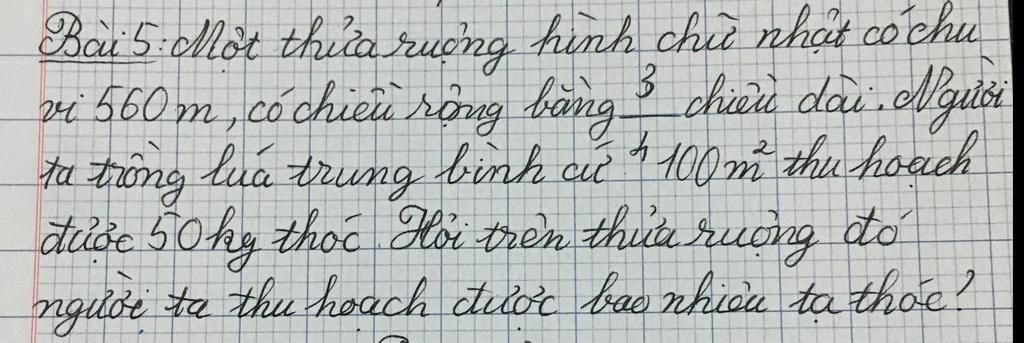 Bài 5: Một thửa ruộng hình chữ nhật có chu
vi 560 m, có chiều rộng bằng 3/4 chiều dài. Người
ta trồng lúa trung bình cứ 100 m² thu hoạch
được 50 kg thóc. Hỏi trên thửa ruộng đó
người ta thu hoạch được bao nhiêu tạ thóc?